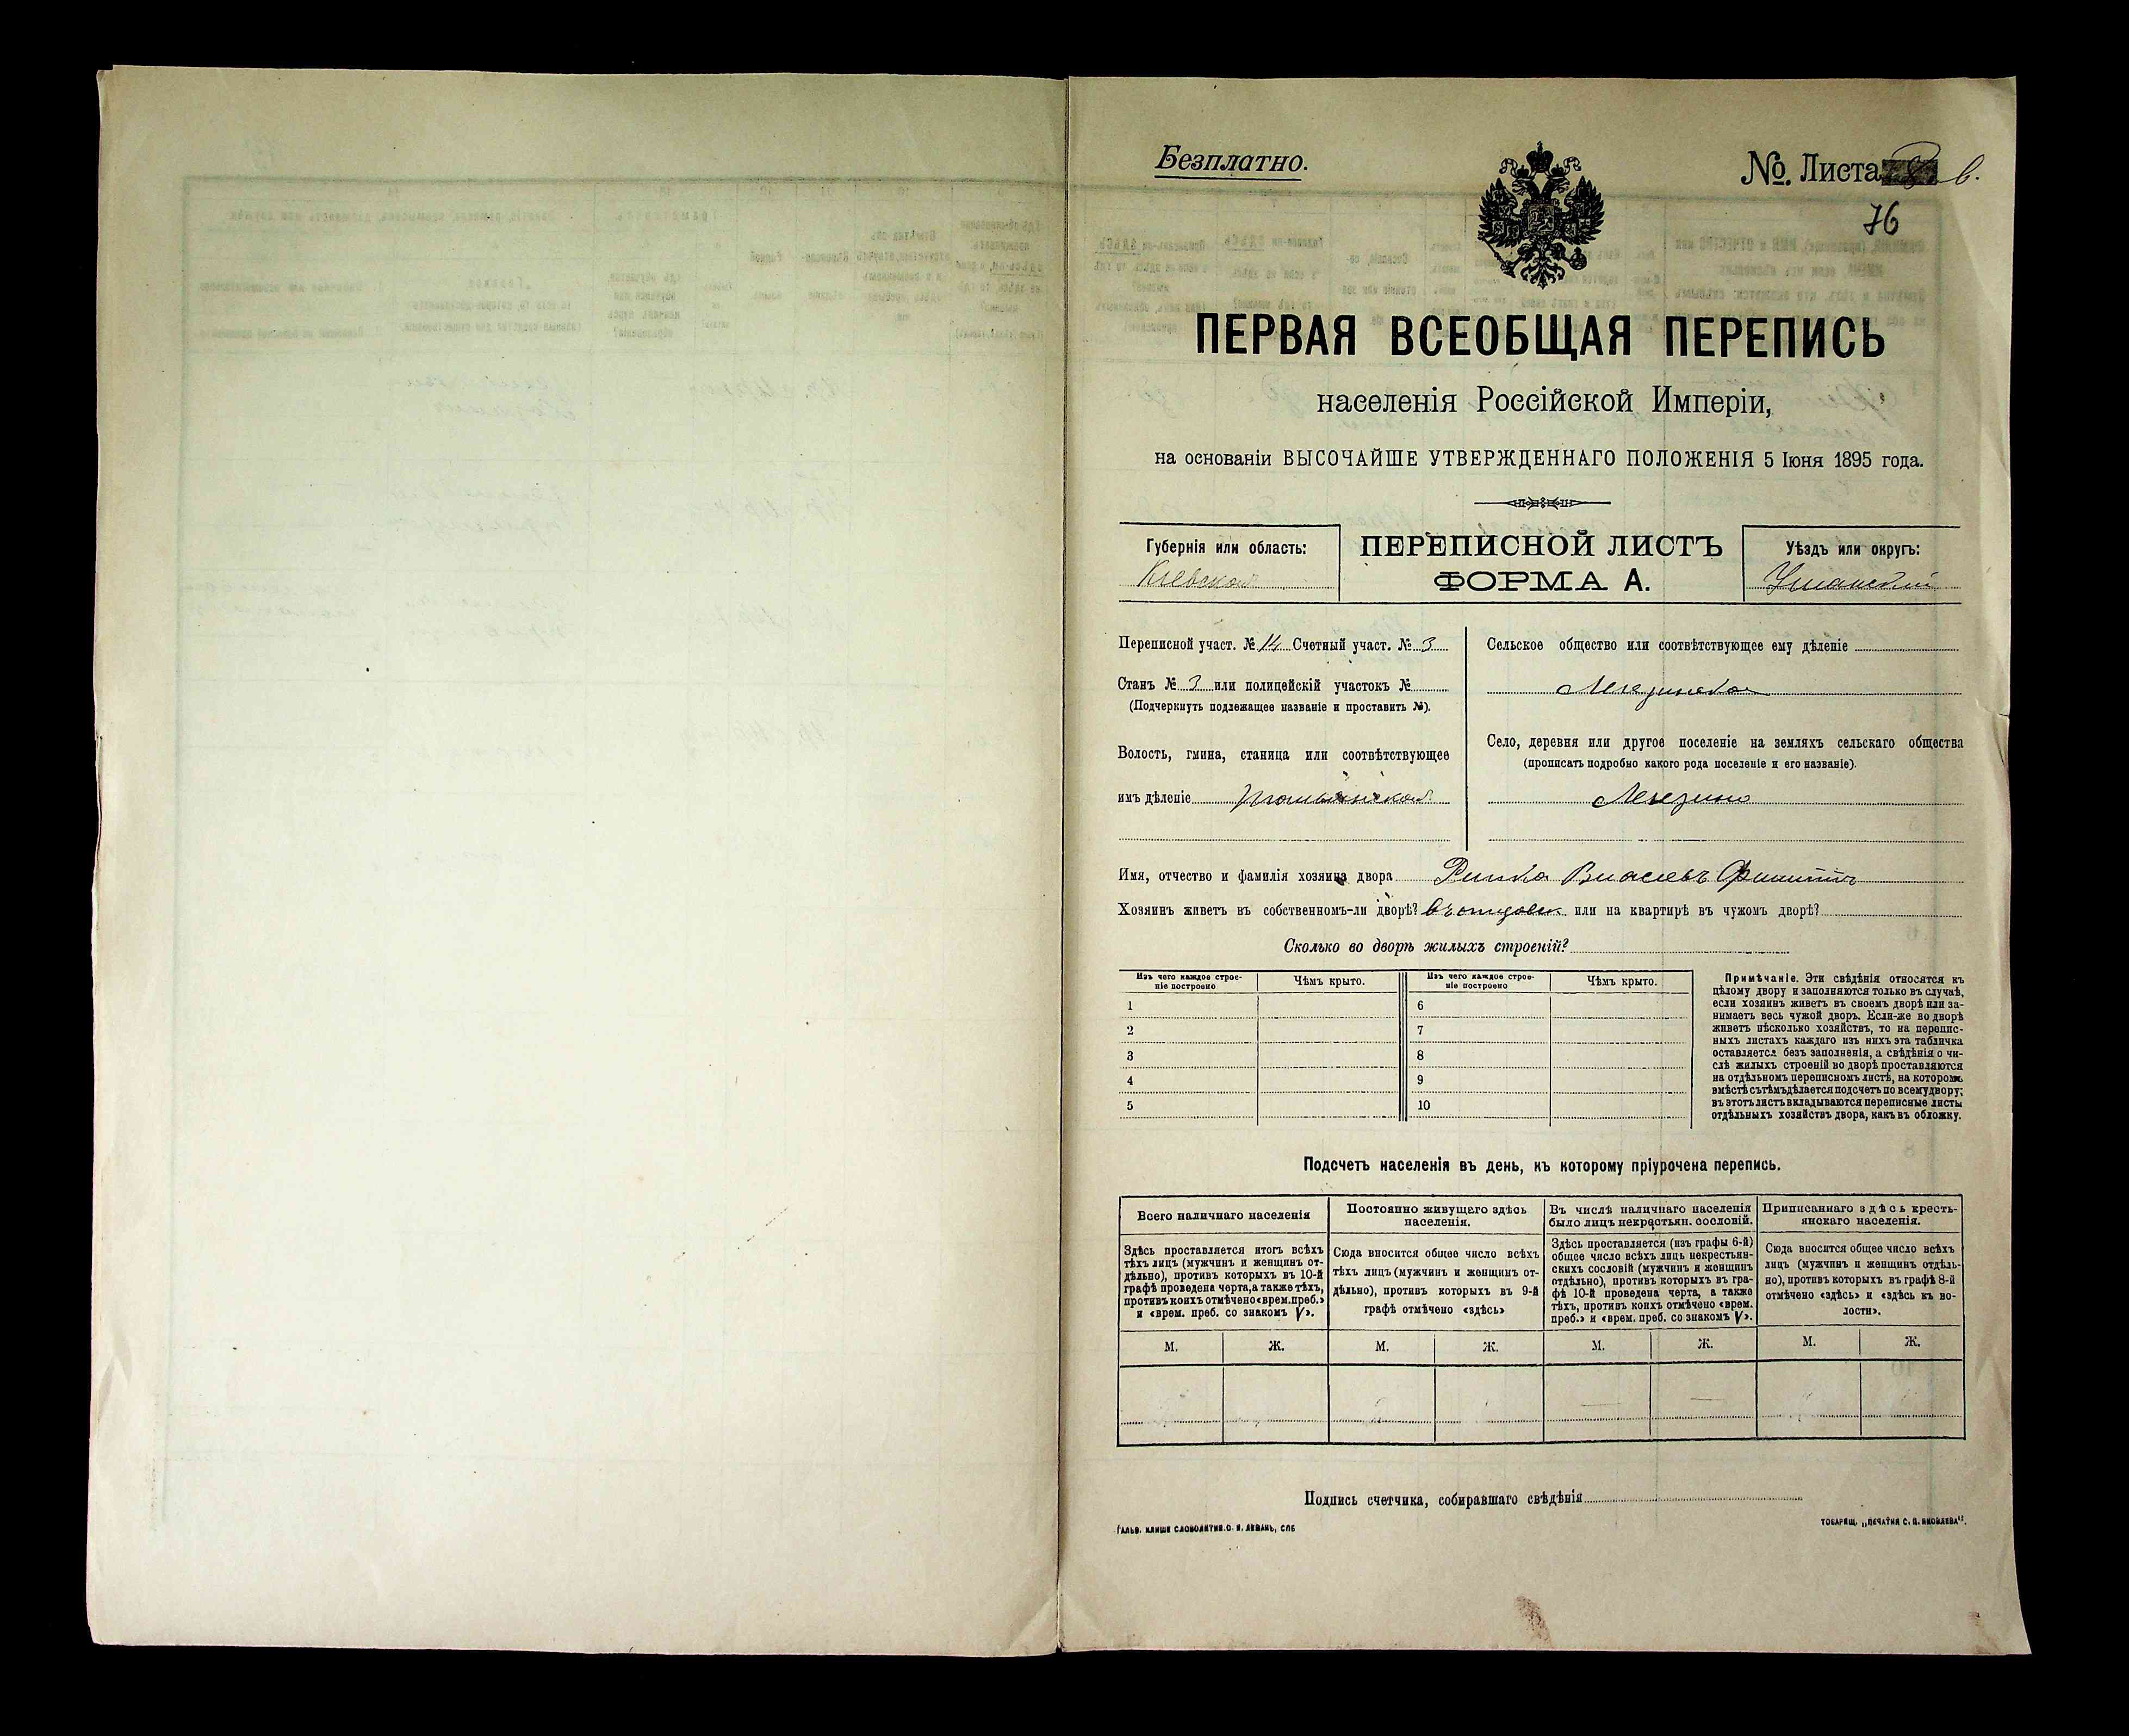 Безплатно.
№. Листа 8 в.
76
ПЕРВАЯ ВСЕОБЩАЯ ПЕРЕПИСЬ
населенія Россійской Имперіи,
на основаніи ВЫСОЧАЙШЕ УТВЕРЖДЕННАГО ПОЛОЖЕНІЯ 5 Іюня 1895 года.
Губернія или область:
Кіевская
ПЕРЕПИСНОЙ ЛИСТЪ
ФОРМА А.
Уѣздъ или округъ:
Уманскій
Переписной участ. № 14 Счетный участ. № 3
Станъ № 3 или полицейскій участокъ №
(Подчеркнуть подлежащее названіе и проставить №).
Волость, гмина, станица или соотвѣтствующее
имъ дѣленіе
Сельское общество или соотвѣтствующее ему дѣленіе
Легезинское
Село, деревня или другое поселеніе на земляхъ сельскаго общества
(прописать подробно какого рода поселеніе и его названіе).
Легезино
Имя, отчество и фамилія хозяина двора
Хозяинъ живетъ въ собственномъ-ли дворѣ? или на квартирѣ въ чужомъ дворѣ?
Сколько во дворѣ жилыхъ строеній?
Изъ чего каждое строе-
ніе построено
Чѣмъ крыто.
Изъ чего каждое строе-
ніе построено
Чѣмъ крыто.
1 6
2 7
3 8
4 9
5 10
Примѣчаніе. Эти свѣдѣнія относятся къ
цѣлому двору и заполняются только въ случаѣ,
если хозяинъ живетъ въ своемъ дворѣ или за-
нимаетъ весь чужой дворъ. Если-же во дворѣ
живетъ нѣсколько хозяйствъ, то на перепис-
ныхъ листахъ каждаго изъ нихъ эта табличка
оставляется безъ заполненія, а свѣдѣнія о чи-
слѣ жилыхъ строеній во дворѣ проставляются
на отдѣльномъ переписномъ листѣ, на которомъ
вмѣстѣ съ тѣмъ дѣлается подсчетъ по всему двору;
въ этотъ листъ вкладываются переписные листы
отдѣльныхъ хозяйствъ двора, какъ въ обложку.
Подсчетъ населенія въ день, къ которому пріурочена перепись.
Всего наличнаго населенія
Здѣсь проставляется итогъ всѣхъ
тѣхъ лицъ (мужчинъ и женщинъ от-
дѣльно), противъ которыхъ въ 10-й
графѣ проведена черта, а также тѣхъ,
противъ коихъ отмѣчено «врем. преб.»
и «врем. преб. со знакомъ V».
Постоянно живущаго здѣсь
населенія.
Сюда вносится общее число всѣхъ
тѣхъ лицъ (мужчинъ и женщинъ от-
дѣльно), противъ которыхъ въ 9-й
графѣ отмѣчено «здѣсь»
Въ числѣ наличнаго населенія
было лицъ некрестьян. сословій.
Здѣсь проставляется (изъ графы 6-й)
общее число всѣхъ лицъ некрестьян-
скихъ сословій (мужчинъ и женщинъ
отдѣльно), противъ которыхъ въ гра-
фѣ 10-й проведена черта, а также
тѣхъ, противъ коихъ отмѣчено «врем.
преб.» и «врем. преб. со знакомъ V».
Приписаннаго здѣсь кресть-
янскаго населенія.
Сюда вносится общее число всѣхъ
лицъ (мужчинъ и женщинъ отдѣль-
но), противъ которыхъ въ графѣ 8-й
отмѣчено «здѣсь» и «здѣсь къ во-
лости».
М. Ж. М. Ж. М. Ж. М. Ж.
Подпись счетчика, собиравшаго свѣдѣнія
ГАЛЬВ. КЛИШЕ СЛОВОЛИТНИ О. И. ЛЕМАНЪ, СПБ
ТОВАРИЩ. „ПЕЧАТНЯ С. П. ЯКОВЛЕВА“.